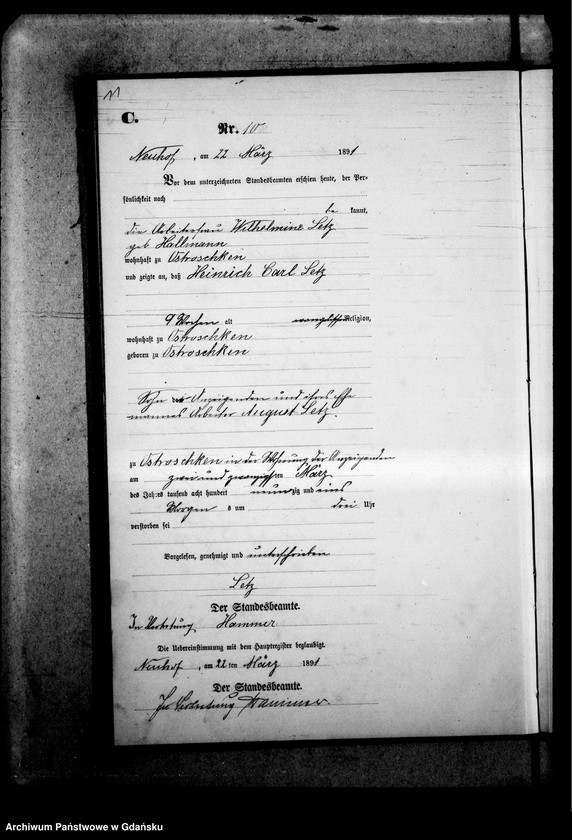 11
C.
Nr. 10
Neuhof, am 22 März 1891
Vor dem unterzeichneten Standesbeamten erschien heute, der Per-
sönlichkeit nach
be kannt,
die Arbeiterfrau Wilhelmine Letz
geb Hallmann
wohnhaft zu Ostroschken
und zeigte an, daß Heinrich Carl Letz
9 Wochen alt evangelischer Religion,
wohnhaft zu Ostroschken
geboren zu Ostroschken
Sohn der Anzeigenden und ihres Ehe
mannes Arbeiter August Letz.
zu Ostroschken in der Wohnung der Anzeigenden
am zwei und zwanzigsten März
des Jahres tausend acht hundert neunzig und eins
Morgens um drei Uhr
verstorben sei
Vorgelesen, genehmigt und unterschrieben
Letz
Der Standesbeamte.
In Vertretung Hammer
Die Uebereinstimmung mit dem Hauptregister beglaubigt.
Neuhof, am 22 ten März 1891
Der Standesbeamte.
In Vertretung Hammer
Archiwum Państwowe w Gdańsku